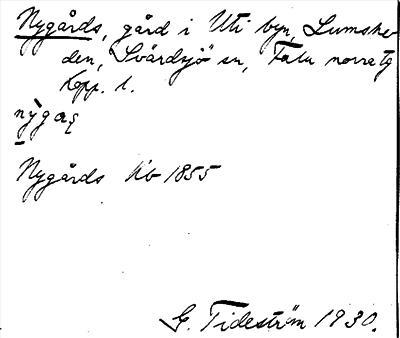 Nygårds, gård i Uti byn, Lumshe-
den, Svärdsjö sn, Falu norra tg
Kopp. l.
nỳgaș
Nygårds Kb 1855
G. Tideström 1930.